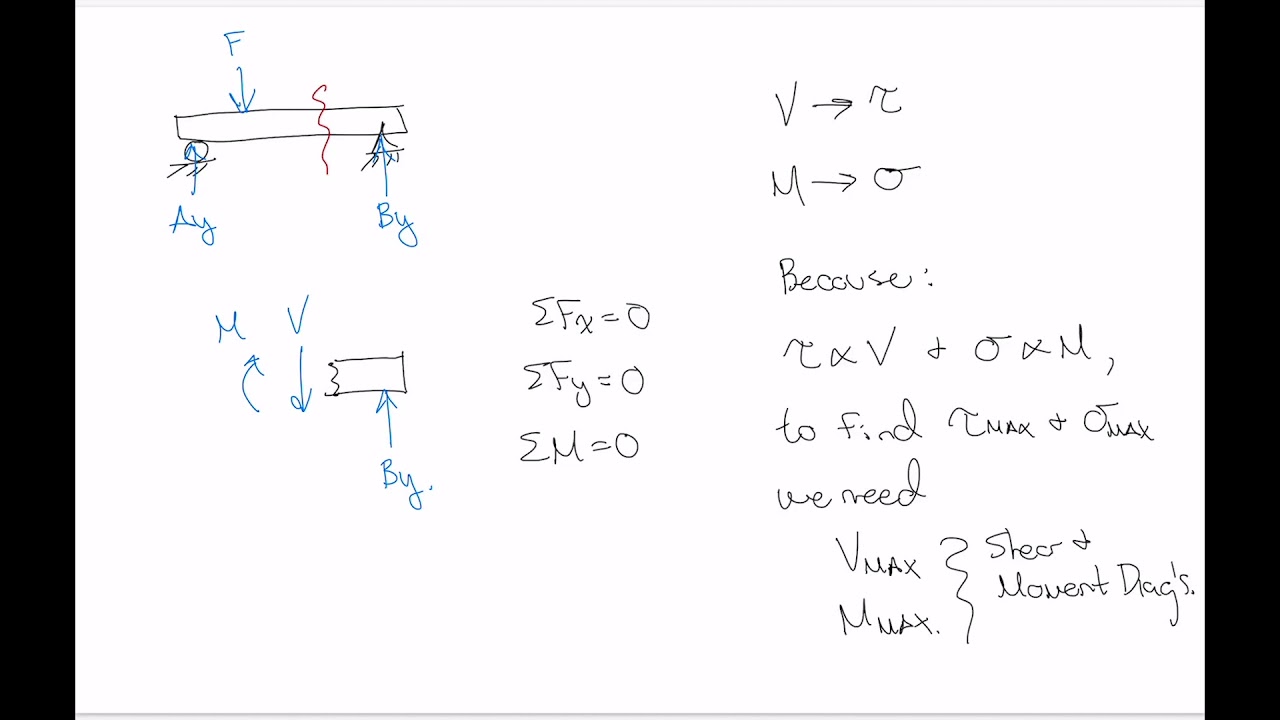 F
Ay
By
M V
By.
ΣFx=0
ΣFy=0
ΣM=0
V → τ
M → σ
Because:
τ ∝ V + σ ∝ M,
to find τMAX + σMAX
we need
VMAX
MMAX.
Shear +
Moment Diag's.